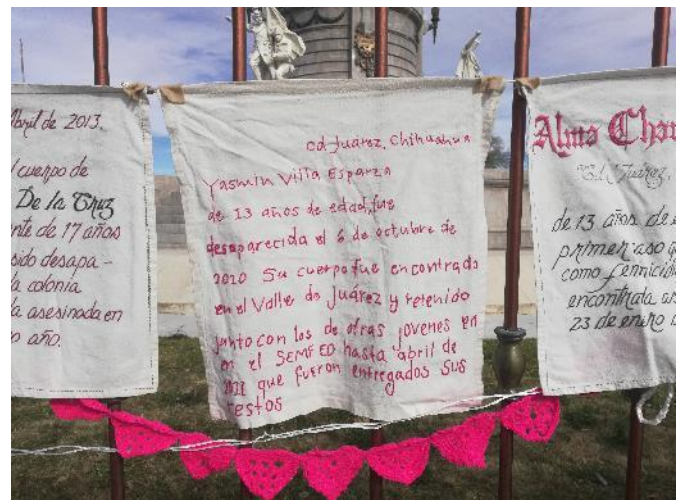 Abril de 2013.
cuerpo de
De la Cruz
nte de 17 años
sido desapa-
la colonia
la asesinada en
año.
Cd Juárez, Chihuahua
Yasmin Villa Esparza
de 13 años de edad, fue
desaparecida el 6 de octubre de
2010 Su cuerpo fue encontrado
en el Valle de Juárez y retenido
junto con los de otras jovenes en
en el SEMEFO hasta abril de
que fueron entregados sus
restos
Alma Chav
Cd. Juárez,
de 13 años de e
primer
como feminicid
encontrada as
23 de enero